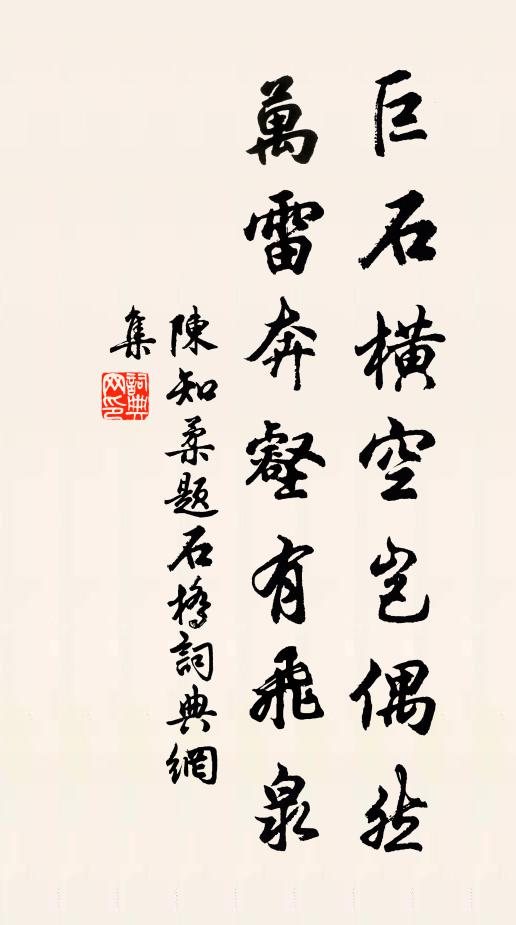 巨石橫空岂偶然
萬雷奔壑有飛泉
陳知柔题石橋詞典網
集
詞典
网印